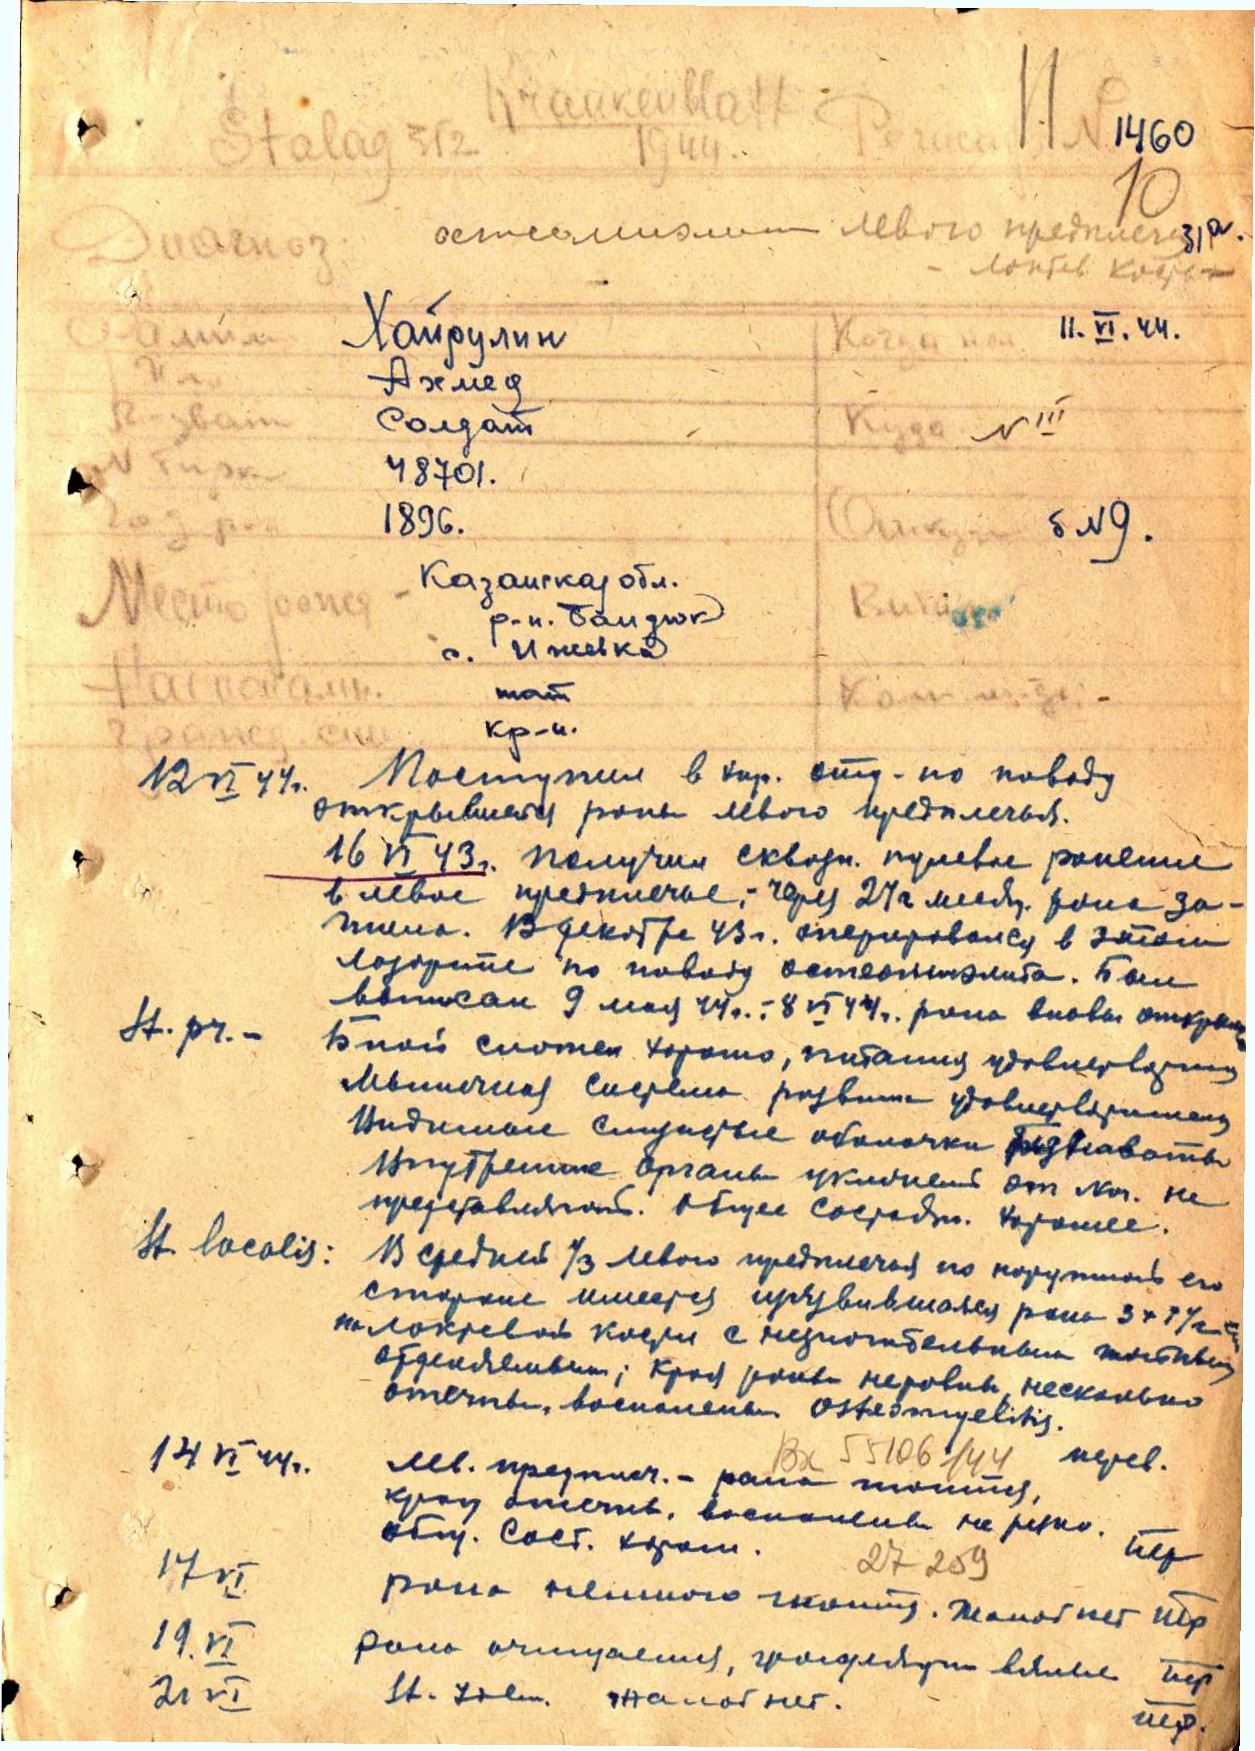 Krankenblatt
И N 1460
Stalag 312 1944.
10
Диагноз: остеомиэлит левого предплечья
- локтев. кости
31а.
Хайрулин Когда 11.VI.44.
Имя Ахмед
В-зван Солдат Куда N III
N бирк 48701.
Год рож 1896. Откуда б N9.
Место рожд - Казанская обл.
р-н. Бондюк
с. Ижевка
тат
Гражд. кр-н.
12 VI 44г. Поступил в хир. отд-по поводу
открывшейся раны левого предплечья.
16 VI 43г. получил сквозн. пулевое ранение
в левое предплечье, - через месяц. рана за-
жила. В декабре 43г. оперировался в этом
лазарете по поводу остеомиэлита. Был
выписан 9 мая 44г. - 8 VI 44г. рана вновь открыл
St. pr. - Б-ной сложен хорошо, питания удовлетворит
Мышечная система развита удовлетворительно
Видимые слизистые оболочки
Внутренние органы уклонений от не
представляют. Общее состоян. хорошее.
St. localis: В средней 1/3 левого предплечья по наружной его
стороне имеется рана 3 x
на локтевой кости с незначительным гнойным
отделяемым; края раны неровны, несколько
отечны, воспалены. Osteomyelitis.
Вх 55106/44 перев.
14 VI 44г. лев. предплеч. - рана гноится,
края отечны, воспалены не резко.
общ. сост. хорош. пер
27259
17 VI рана немного гноится. Жалоб нет пер
19. VI рана очищается, грануляции вялые пер
21 VI St. idem. жалоб нет.
пер.